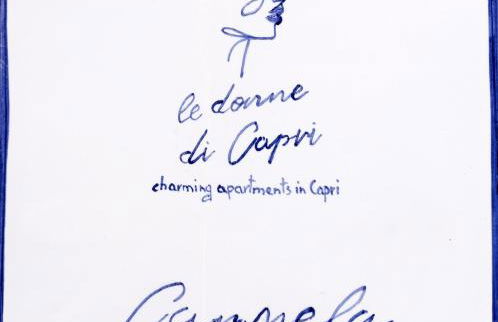 le donne
di Capri
charming apartments in Capri